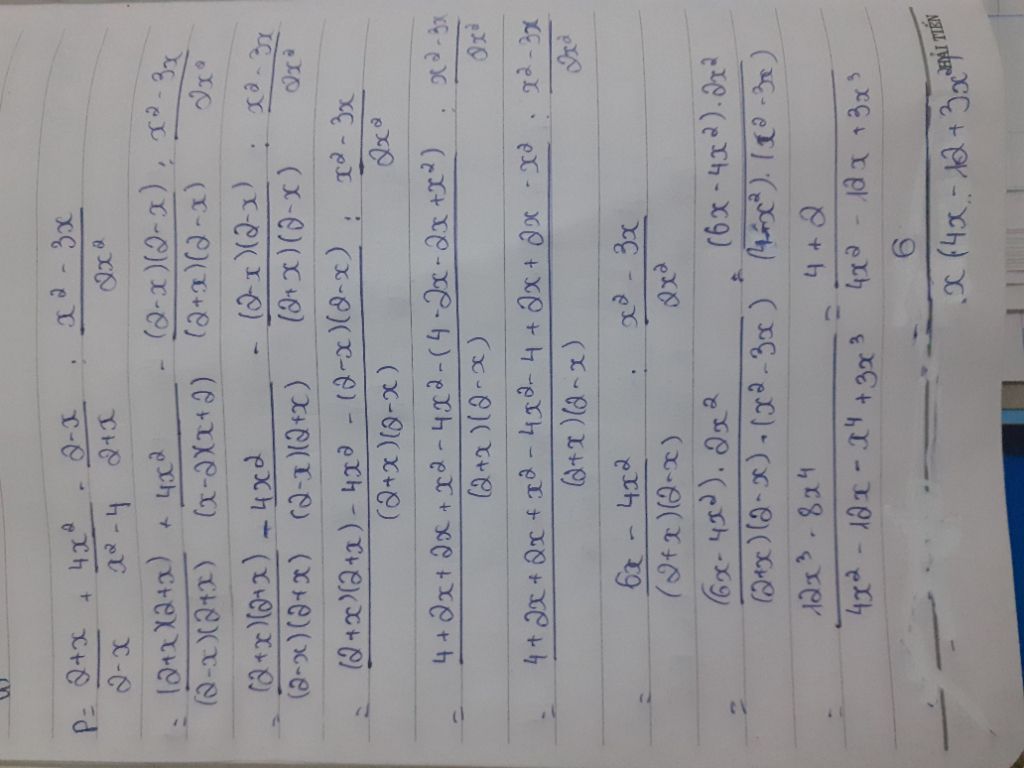 P = (2+x)/(2-x) + 4x²/(x²-4) - (2-x)/(2+x) : (x²-3x)/(2x²)
= (2+x)(2+x)/((2-x)(2+x)) + 4x²/((x-2)(x+2)) - (2-x)(2-x)/((2+x)(2-x)) : (x²-3x)/(2x²)
= (2+x)(2+x)/((2-x)(2+x)) - 4x²/((2-x)(2+x)) - (2-x)(2-x)/((2+x)(2-x)) : (x²-3x)/(2x²)
= ((2+x)(2+x) - 4x² - (2-x)(2-x))/((2+x)(2-x)) : (x²-3x)/(2x²)
= (4+2x+2x+x²-4x²-(4-2x-2x+x²))/((2+x)(2-x)) : (x²-3x)/(2x²)
= (4+2x+2x+x²-4x²-4+2x+2x-x²)/((2+x)(2-x)) : (x²-3x)/(2x²)
= (6x-4x²)/((2+x)(2-x)) : (x²-3x)/(2x²)
= (6x-4x²).2x²/((2+x)(2-x).(x²-3x)) = (6x-4x²).2x²/((4-x²).(x²-3x))
= (12x³-8x⁴)/(4x²-12x-x⁴+3x³) = (4+2)/(4x²-12x+3x³)
6/(x(4x-12+3x²))
HẢI TIẾN